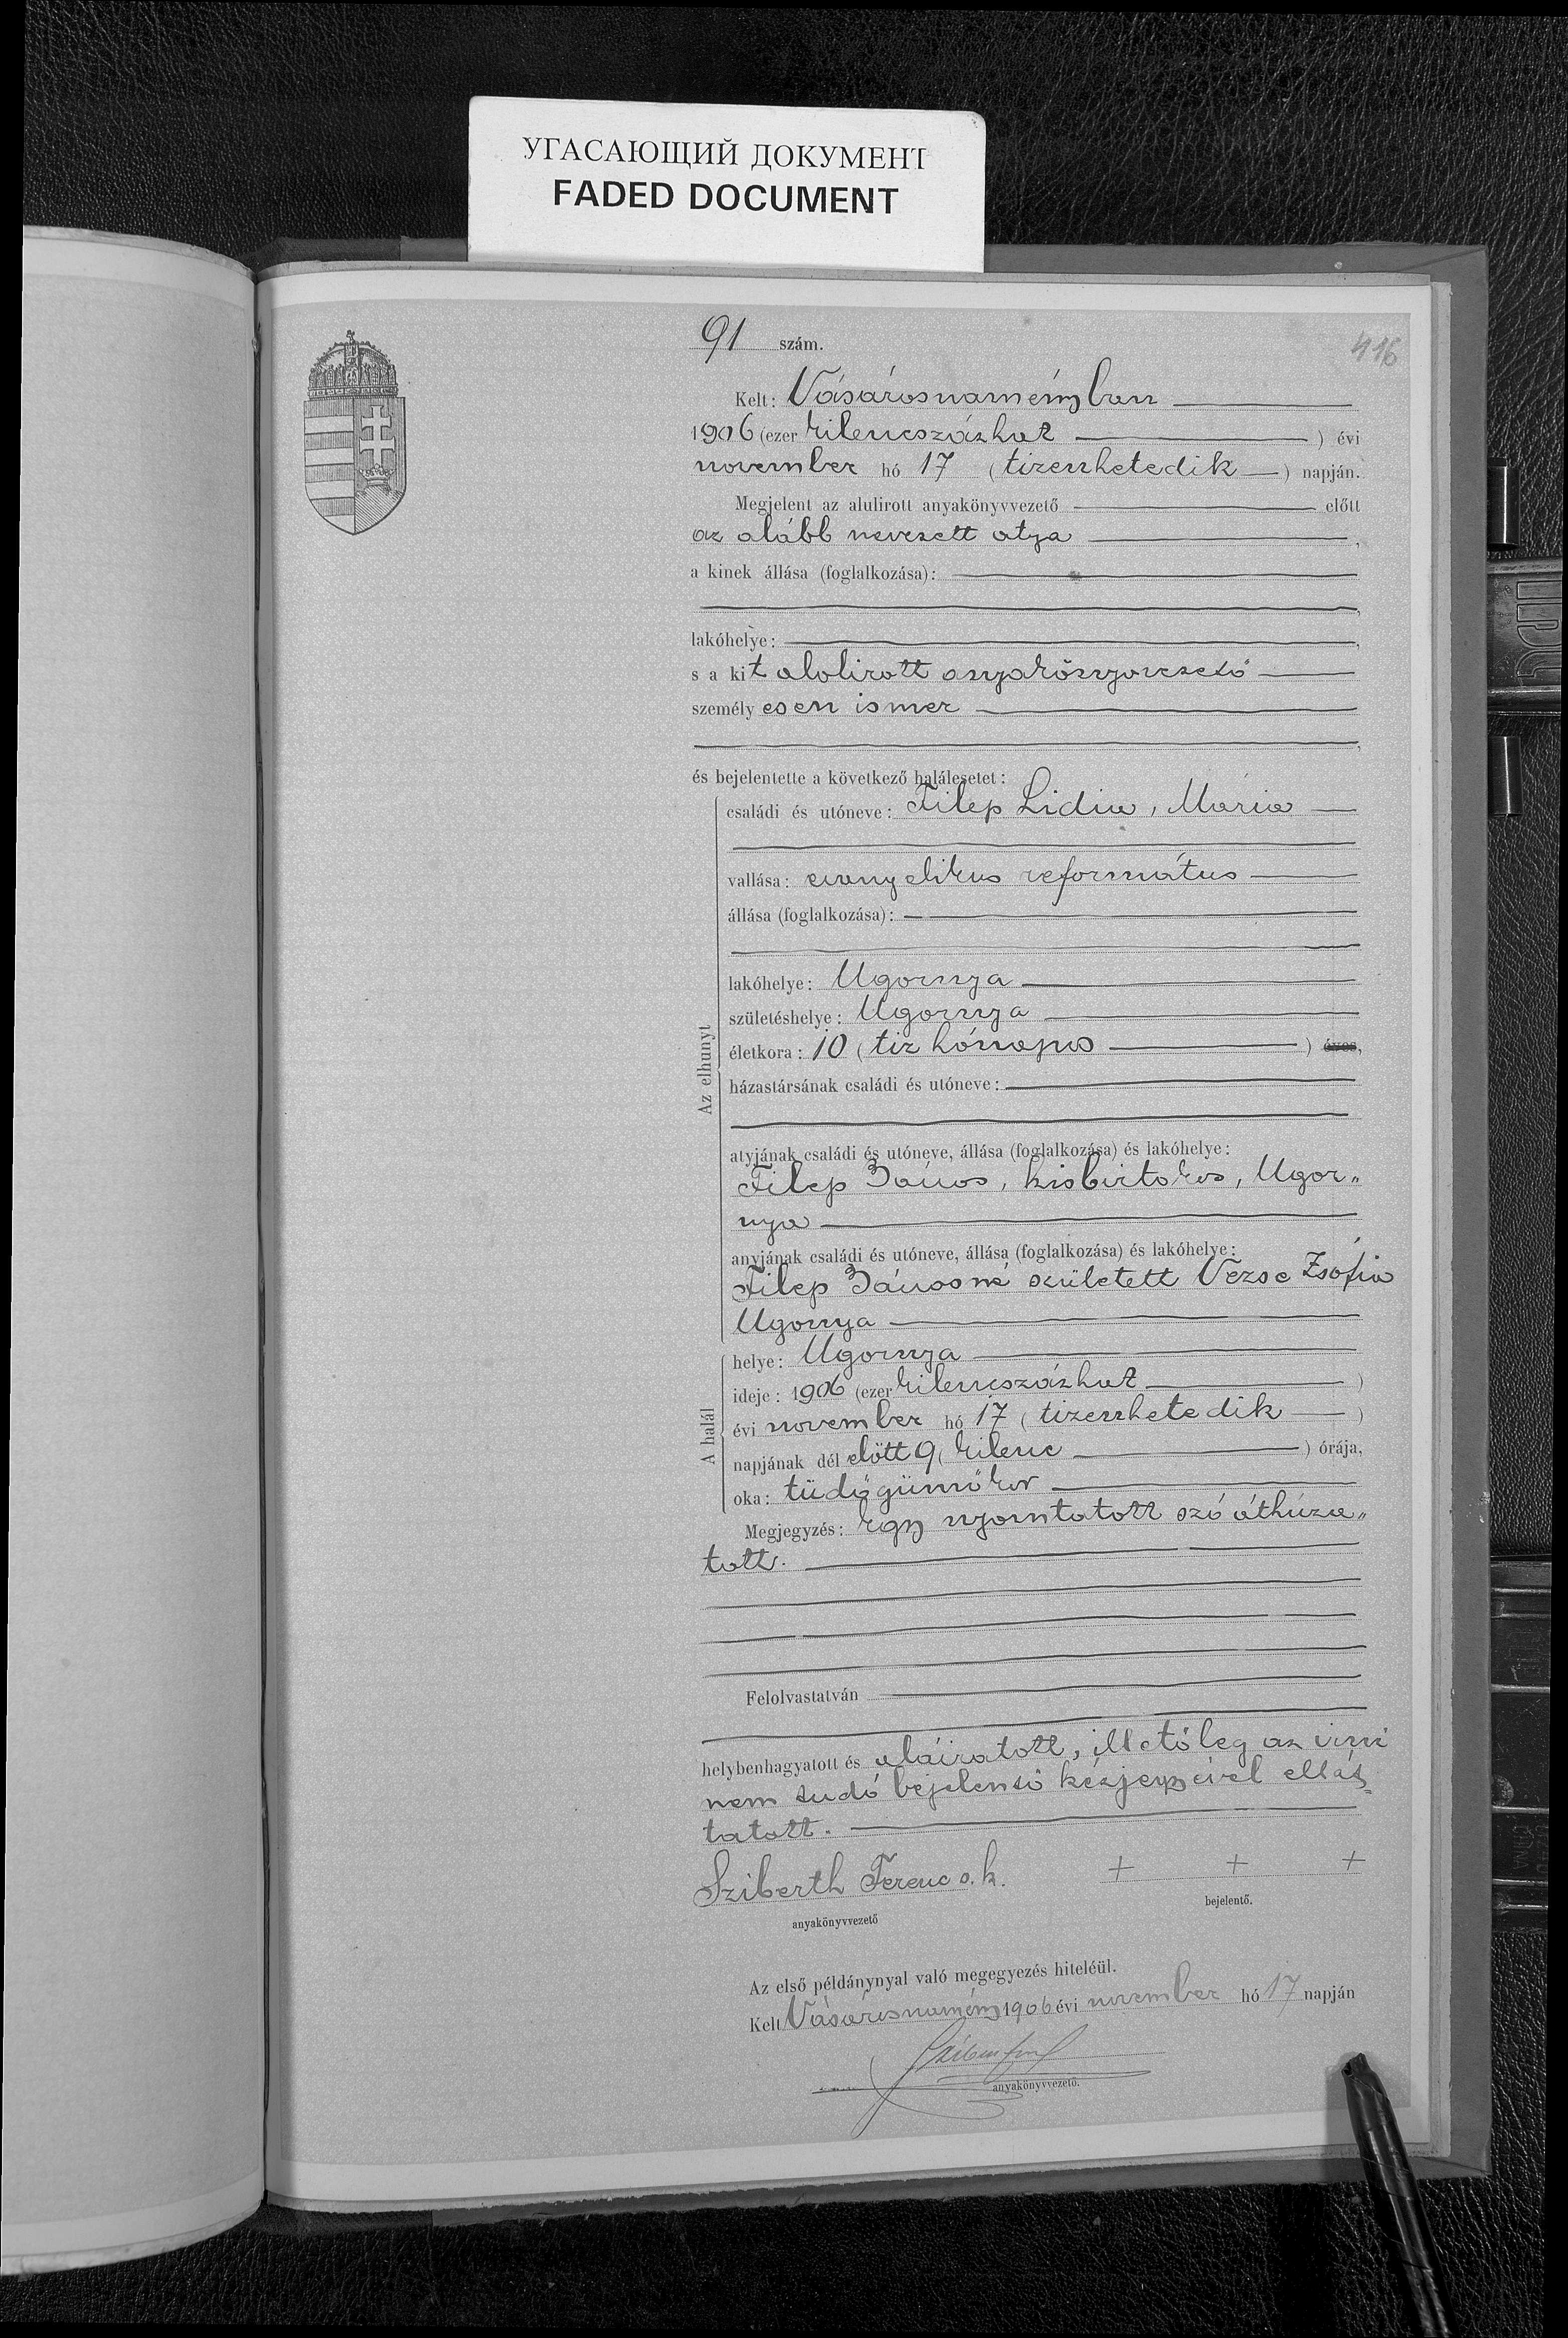 УГАСАЮЩИЙ ДОКУМЕНТ
FADED DOCUMENT
91 szám.
416
Kelt: Vásárosnaményban
1906 (ezer kilencszázhat ) évi
november hó 17 (tizenhetedik ) napján.
Megjelent az alulirott anyakönyvvezető előtt
az alább nevezett atya ,
a kinek állása (foglalkozása):
,
lakóhelye: ,
s a kit alolirott anyakönyvvezető
személyesen ismer
,
és bejelentette a következő halálesetet:
Az elhunyt
családi és utóneve: Filep Lidia, Mária
vallása: evangelikus református
állása (foglalkozása):
lakóhelye: Ugornya
születéshelye: Ugornya
életkora: 10 (tiz hónapos ) éves,
házastársának családi és utóneve:
atyjának családi és utóneve, állása (foglalkozása) és lakóhelye:
Filep János, kisbirtokos, Ugor„
nya
anyjának családi és utóneve, állása (foglalkozása) és lakóhelye:
Filep Jánosné született Vezse Zsófia
Ugornya
A halál
helye: Ugornya
ideje: 1906 (ezer kilencszázhat )
évi november hó 17 (tizenhetedik )
napjának dél előtt 9 (kilenc ) órája,
oka: tüdőgümőkor
Megjegyzés: Egy nyomtatott szó áthúza„
tott.
Felolvastatván
helybenhagyatott és aláiratott, illetőleg az irni
nem tudó bejelentő kézjegyével ellát=
tatott.
Sziberth Ferenc s. k. + + +
anyakönyvvezető
bejelentő.
Az első példánynyal való megegyezés hiteléül.
Kelt Vásárosnamény 1906 évi november hó 17 napján
anyakönyvvezető.